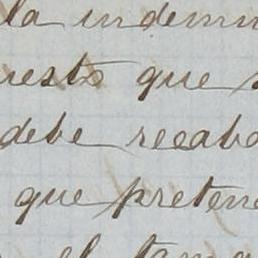 la indemn
resto que
debe recaba
que preten
el tama